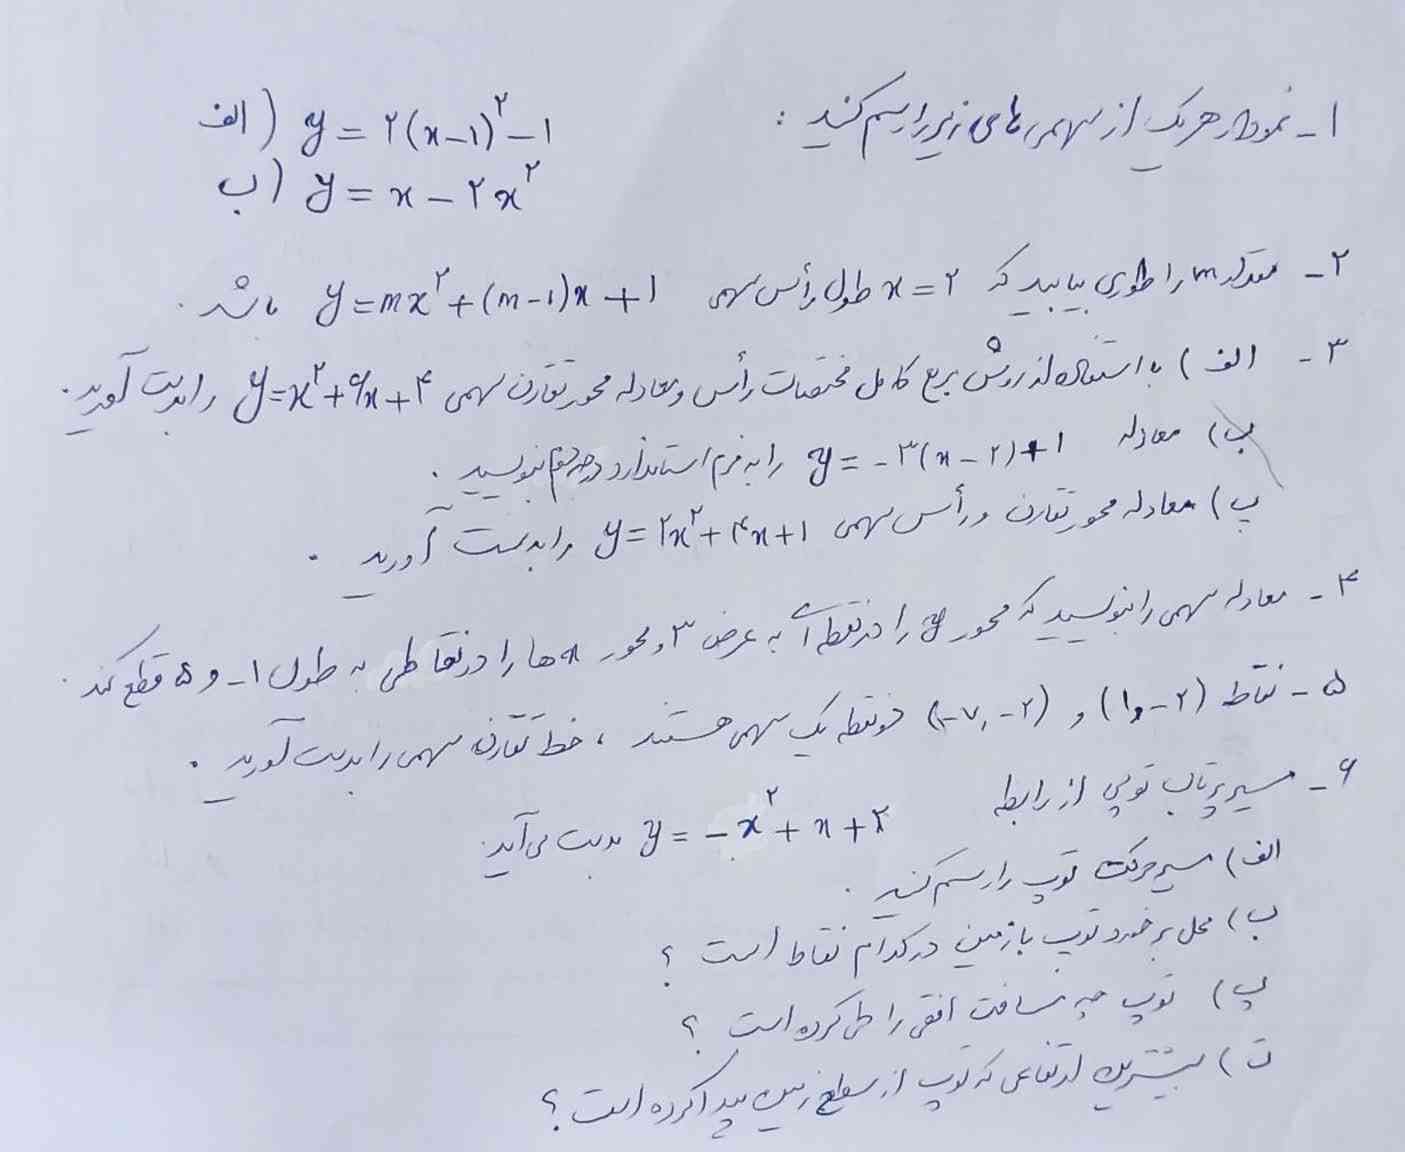 ۱- نمودار هر یک از سهمی های زیر را رسم کنید : الف) y = ۲(x-۱)^۲ - ۱
ب) y = x - ۲x^۲
۲- مقدار m را طوری بیابید که x = ۲ طول رأس سهمی y = mx^۲ + (m-۱)x + ۱ باشد .
۳- الف) با استفاده از روش مربع کامل مختصات رأس و معادله محور تقارن سهمی y = x^۲ + ۶x + ۴ را بدست آورید .
ب) معادله y = -۳(x-۲)+۱ را به فرم استاندارد درجه دوم بنویسید .
پ) معادله محور تقارن و رأس سهمی y = ۲x^۲ + ۴x + ۱ را بدست آورید .
۴- معادله سهمی را بنویسید که محور y را در نقطه ای به عرض ۳ و محور x ها را در نقاطی به طول ۱- و ۵ قطع کند .
۵- نقاط (۱و-۲) و (-۷, -۲) دو نقطه یک سهمی هستند ، خط تقارن سهمی را بدست آورید .
۶- مسیر پرتاب توپی از رابطه y = -x^۲ + x + ۲ بدست می آید
الف) مسیر حرکت توپ را رسم کنید .
ب) محل برخورد توپ با زمین در کدام نقاط است ؟
پ) توپ چه مسافت افقی را طی کرده است ؟
ت) بیشترین ارتفاعی که توپ از سطح زمین پیدا کرده است ؟